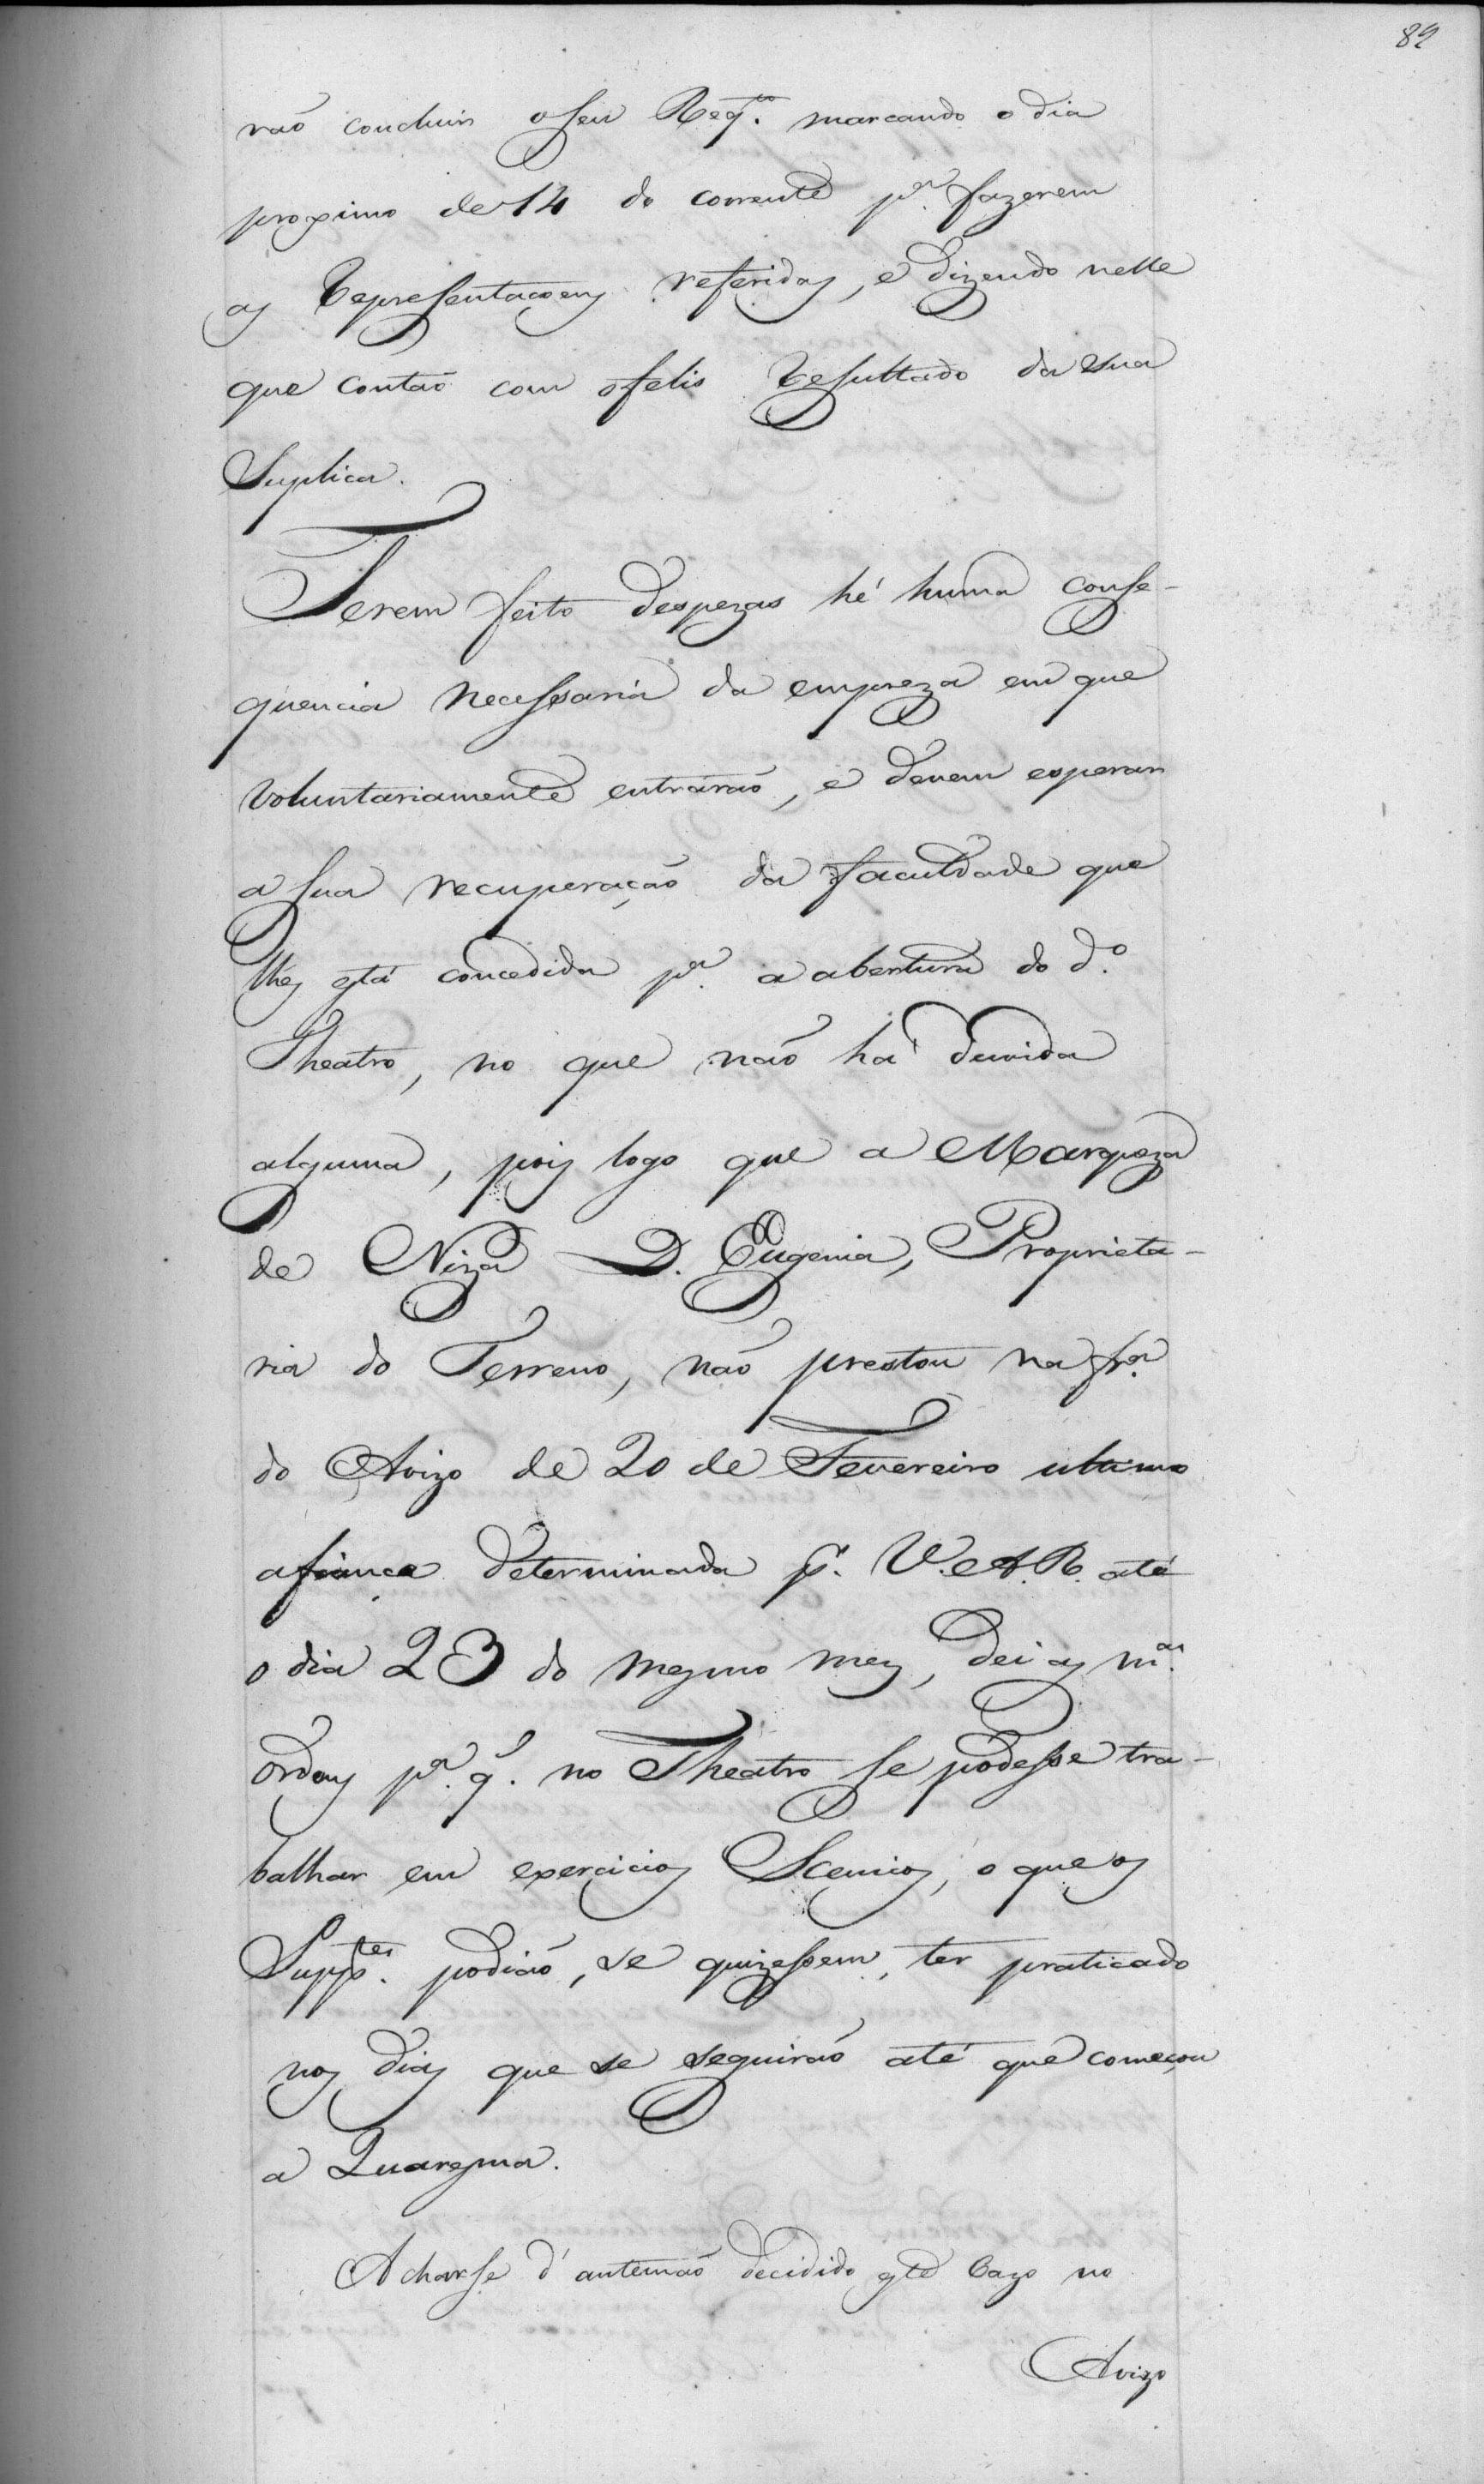 82
rão concluir o seu Reqto. marcando o dia
proximo de 14 do corrente pa. fazerem
as Representaçoens referidas, e dizendo nelle
que contão com o felis Resultado da sua
Suplica.
Terem feito despezas hé huma conse-
quencia necessaria da empreza em que
voluntariamente entrárão, e devem esperar
a sua recuperação da faculdade que
lhes está concedida pa. a abertura do do.
Theatro, no que não há duvida
alguma, pois logo que a Marqueza
de Niza D. Eugenia, Proprieta-
ria do Terreno, não prestou na fra.
do Avizo de 20 de Fevereiro ultimo
a fiança determinada pr. V. A. R. até
o dia 23 do mesmo mes, dei as mas.
ordens pa. q. no Theatro se podesse tra-
balhar em exercicios Scenicos, o que os
Suppes. podião, se quizessem, ter praticado
nos dias que se seguirão até que começou
a Quaresma.
Achar se d'antemão decidido este Cazo no
Avizo